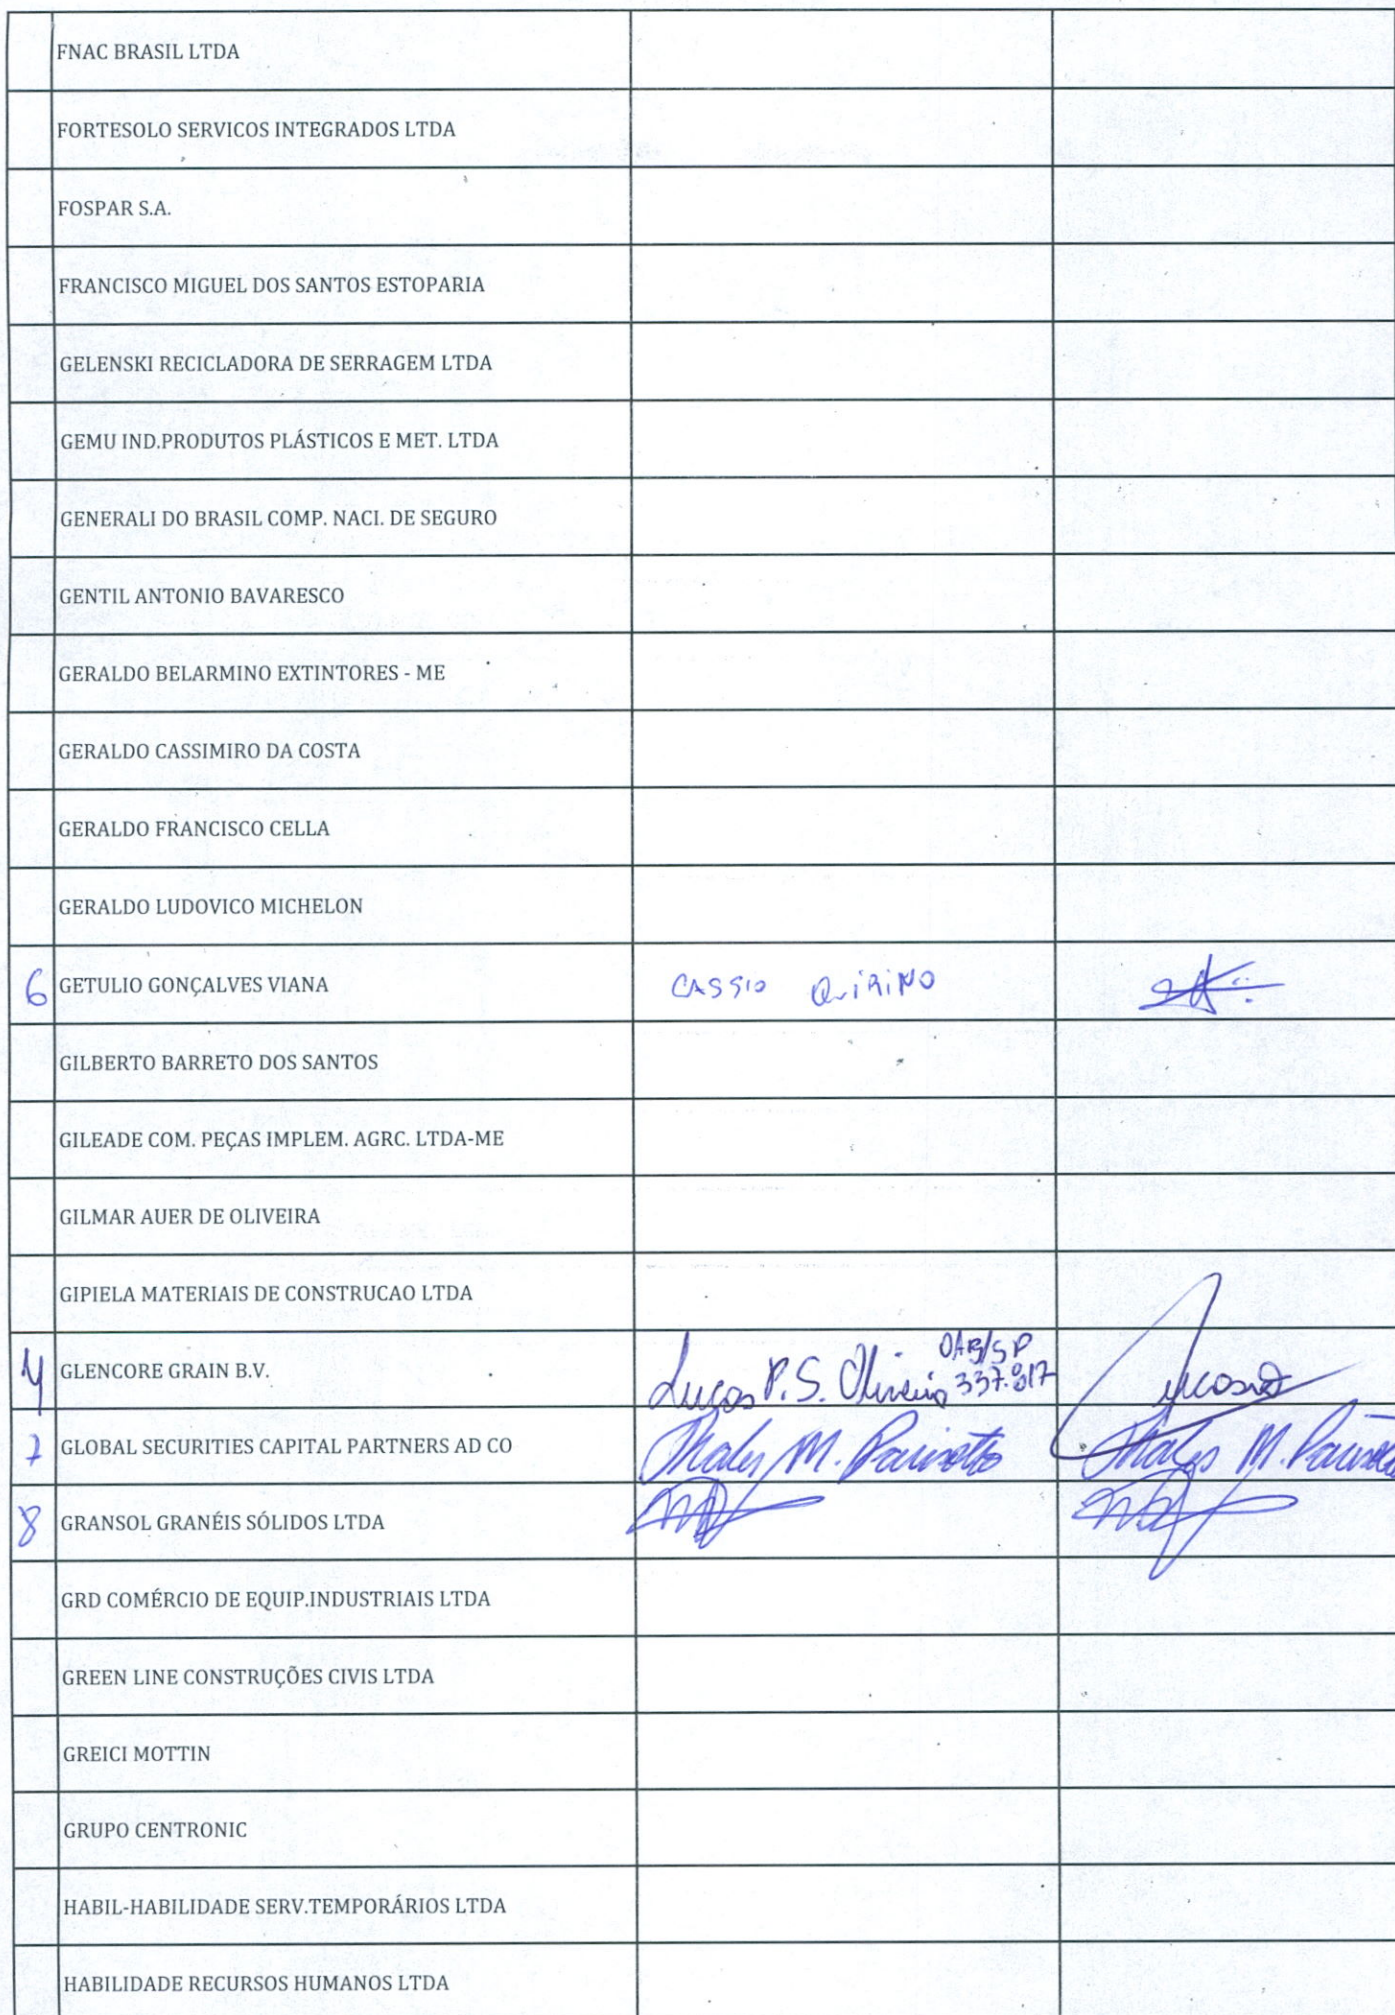 FNAC BRASIL LTDA
FORTESOLO SERVICOS INTEGRADOS LTDA
FOSPAR S.A.
FRANCISCO MIGUEL DOS SANTOS ESTOPARIA
GELENSKI RECICLADORA DE SERRAGEM LTDA
GEMU IND.PRODUTOS PLÁSTICOS E MET. LTDA
GENERALI DO BRASIL COMP. NACI. DE SEGURO
GENTIL ANTONIO BAVARESCO
GERALDO BELARMINO EXTINTORES - ME
GERALDO CASSIMIRO DA COSTA
GERALDO FRANCISCO CELLA
GERALDO LUDOVICO MICHELON
6 GETULIO GONÇALVES VIANA CASSIO QUIRINO
GILBERTO BARRETO DOS SANTOS
GILEADE COM. PEÇAS IMPLEM. AGRC. LTDA-ME
GILMAR AUER DE OLIVEIRA
GIPIELA MATERIAIS DE CONSTRUCAO LTDA
GLENCORE GRAIN B.V. Lucas P. S. Oliveira OAB/SP
7 GLOBAL SECURITIES CAPITAL PARTNERS AD CO Thales M. Parisotto Thales M.
8 GRANSOL GRANÉIS SÓLIDOS LTDA
GRD COMÉRCIO DE EQUIP.INDUSTRIAIS LTDA
GREEN LINE CONSTRUÇÕES CIVIS LTDA
GREICI MOTTIN
GRUPO CENTRONIC
HABIL-HABILIDADE SERV.TEMPORÁRIOS LTDA
HABILIDADE RECURSOS HUMANOS LTDA